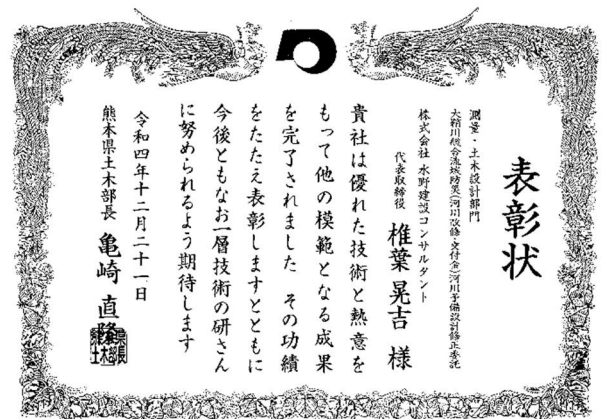 表彰状
測量・土木設計部門
大鞘川総合流域防災(河川改修・交付金)河川予備設計修正委託
株式会社 水野建設コンサルタント
代表取締役 椎葉 晃吉 様
貴社は優れた技術と熱意を
もって他の模範となる成果
を完了されました その功績
をたたえ表彰しますとともに
今後ともなお一層技術の研さん
に努められるよう期待します
令和四年十二月二十一日
熊本県土木部長 亀崎 直隆